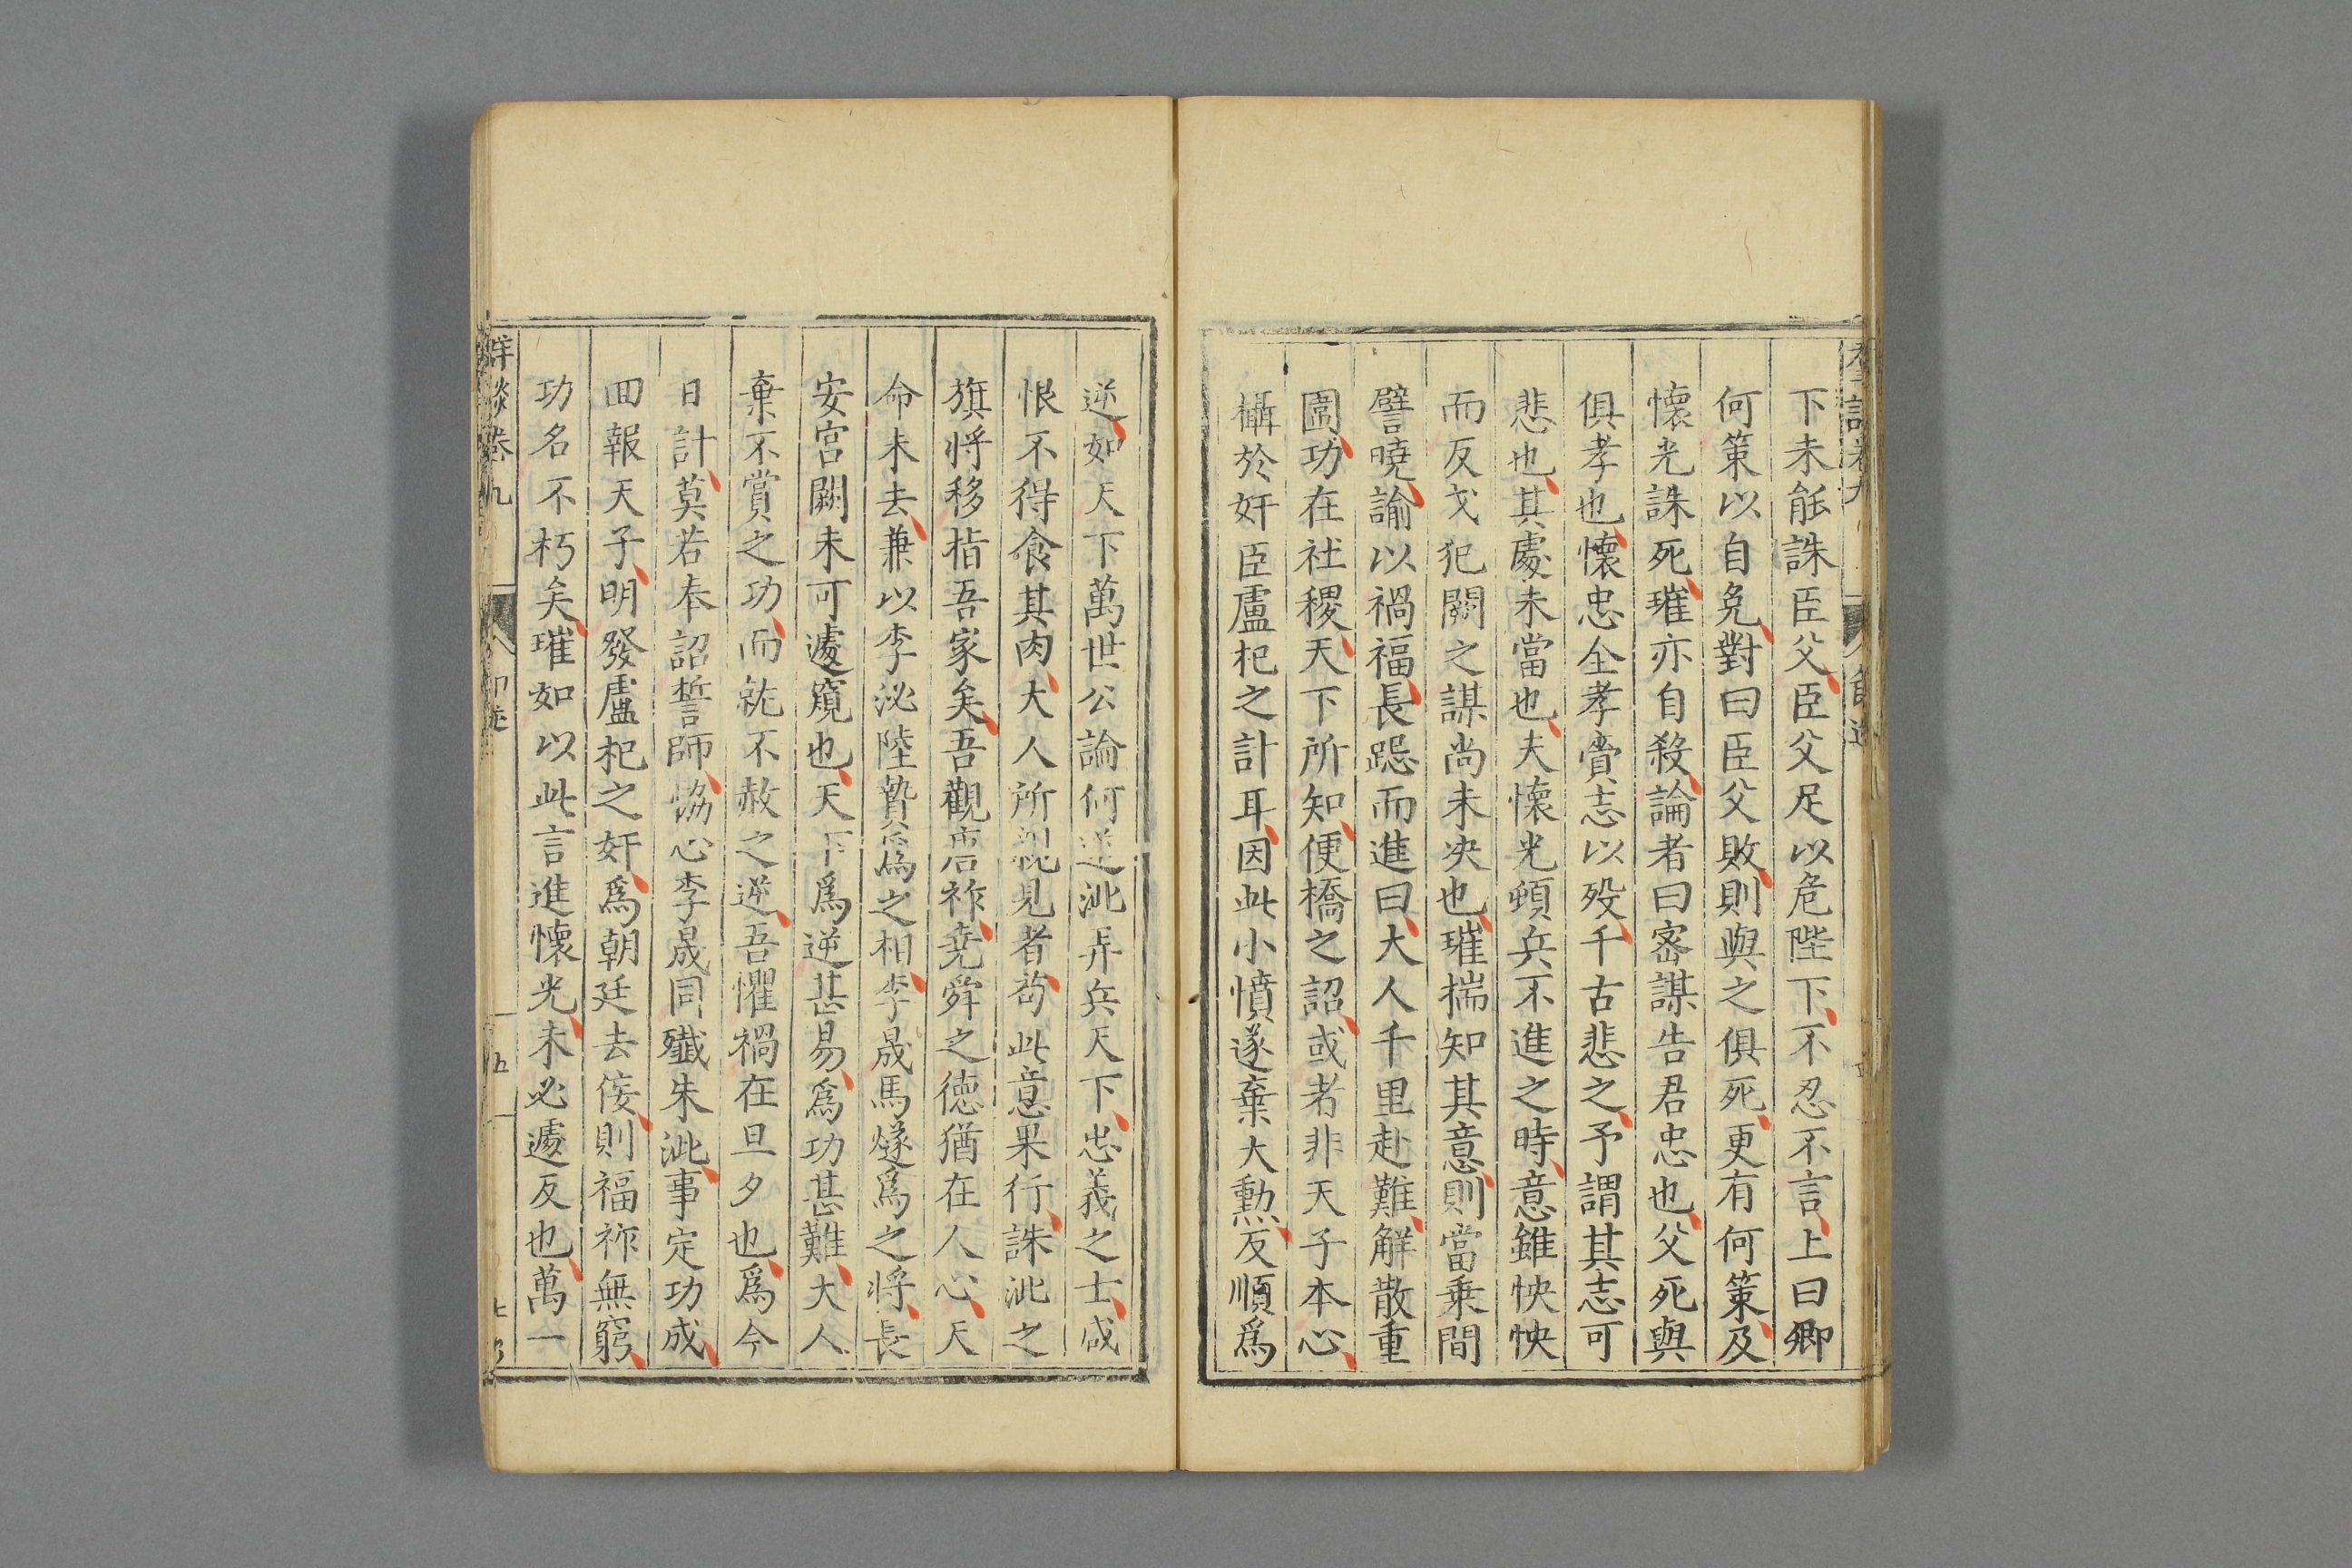 下未能誅臣父臣父足以危陛下不忍不言上曰卿
何策以自免對曰臣父敗則與之俱死更有何策及
懷光誅死璀亦自殺論者曰密謀告君忠也父死與
俱孝也懷忠全孝賫志以歿千古悲之予謂其志可
悲也其處未當也夫懷光頓兵不進之時意雖怏怏
而反戈犯闕之謀尚未决也璀揣知其意則當乗間
譬曉諭以禍福長跽而進曰大人千里赴難解散重
圍功在社稷天下所知便橋之詔或者非天子本心
懾於奸臣盧杞之計耳因此小憤遂棄大勲反順為
逆如天下萬世公論何逆泚弄兵天下忠義之士咸
恨不得食其肉大人所親見者苟此意果行誅泚之
旗将移指吾家矣吾觀唐祚堯舜之德猶在人心天
命未去兼以李泌陸贄為之相李晟馬燧為之将長
安宮闕未可遽窺也天下為逆甚易為功甚難大人
棄不賞之功而就不赦之逆吾懼禍在旦夕也為今
日計莫若奉詔誓師恊心李晟同殲朱泚事定功成
回報天子明發盧杞之奸為朝廷去佞則福祚無窮
功名不朽矣璀如以此言進懷光未必遽反也萬一
談卷九
五